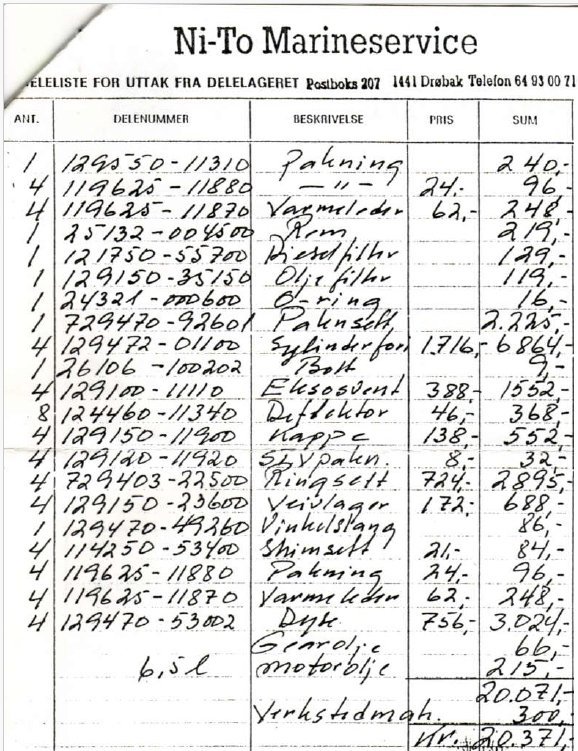 Ni-To Marineservice
ELELISTE FOR UTTAK FRA DELELAGERET Postboks 207 1441 Drøbak Telefon 64 93 00 71
ANT. DELENUMMER BESKRIVELSE PRIS SUM
1 129550-11310 Pakning 240,-
4 119625-11880 —"— 24,- 96,-
4 119625-11870 Varmeleder 62,- 248,-
1 25132-004500 Rem 219,-
1 121750-55700 Dieselfilter 129,-
1 129150-35150 Oljefilter 119,-
1 24321-000600 O-ring 16,-
1 729470-92601 Paknsett 2.225,-
4 129472-01100 Sylinderfori 1.716,- 6864,-
1 26106-100202 Bolt 9,-
4 129100-11110 Eksosvent 388,- 1552,-
8 124460-11340 Deflektor 46,- 368,-
4 129150-11900 Kappe 138,- 552,-
4 129120-11920 pakn. 8,- 32,-
4 729403-22500 Ringsett 724,- 2895,-
4 129150-23600 Veivlager 172,- 688,-
1 129470-49260 Vinkelslang 86,-
4 114250-53400 Shimsett 21,- 84,-
4 119625-11880 Pakning 24,- 96,-
4 119625-11870 Varmeleder 62,- 248,-
4 129470-53002 Dyse 756,- 3.024,-
Gearolje 66,-
6,5l motorolje 215,-
20.071,-
Verkstedmah. 300,-
kr. 20.371,-